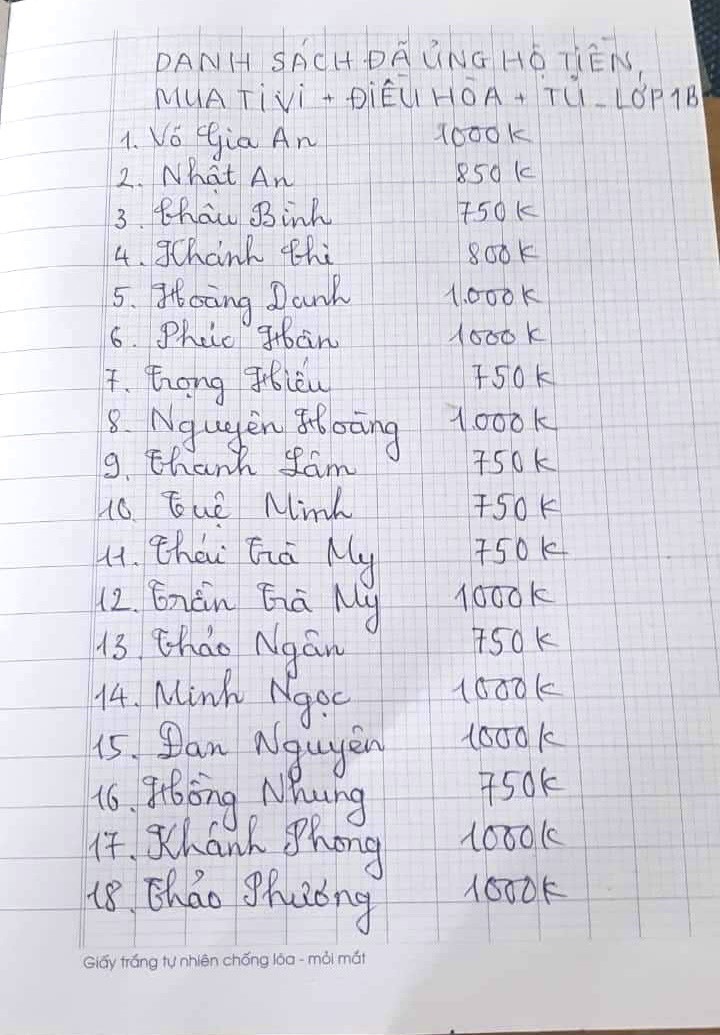 DANH SÁCH ĐÃ ỦNG HỘ TIỀN,
MUA TIVI + ĐIỀU HÒA + TỦ - LỚP 1B
1. Võ Gia An 1000k
2. Nhật An 850k
3. Châu Bình 750k
4. Khánh Chi 800k
5. Hoàng Danh 1.000k
6. Phúc Hân 1000k
7. Trọng Hiếu 750k
8. Nguyên Hoàng 1.000k
9. Thanh Lâm 750k
10. Tuệ Minh 750k
11. Thái Trà My 750k
12. Trần Trà My 1000k
13. Thảo Ngân 750k
14. Minh Ngọc 1000k
15. Đan Nguyên 1000k
16. Hồng Nhung 750k
17. Khánh Phong 1000k
18. Thảo Phương 1000k
Giấy trắng tự nhiên chống lóa - mỏi mắt